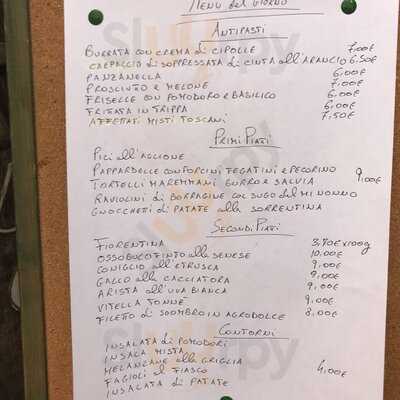 MENU del GIORNO
ANTIPASTI
BURRATA CON CREMA di CIPOLLE 7,00€
CARPACCIO di SOPPRESSATA di CINTA all'ARANCIO 6.50€
PANZANELLA 6,00€
PROSCIUTTO e MELONE 7,00€
FRISELLE CON POMODORO e BASILICO 6,00€
FRITATA IN TRIPPA 6,00€
AFFETTATI MISTI TOSCANI 7,50€
PRIMI PIATI
PICI all'AGLIONE
PAPPARDELLE CON PORCINI FEGATINI e PECORINO 9,00€
TORTELLI MAREMMANI BURRO e SALVIA
RAVIOLINI di BORRAGINE COL SUGO del MI NONNO
GNOCCHETI di PATATE alla SORRENTINA
SECONDI PIATI
FIORENTINA 3,70€x100g
OSSOBUCO FINTO alla SENESE 10,00€
CONIGLIO all'ETRUSCA 9,00€
GALLO alla CACCIATORA 9,00€
ARISTA all'UVA BIANCA 9,00€
VITELLA TONNÉ 9,00€
FILETO di SGOMBRO IN AGRODOLCE 8,00€
CONTORNI
INSALATA di POMODORI
INSALA MISTA
MELANZANE alla GRIGLIA 4,00€
FAGIOLI al FIASCO
INSALATA di PATATE